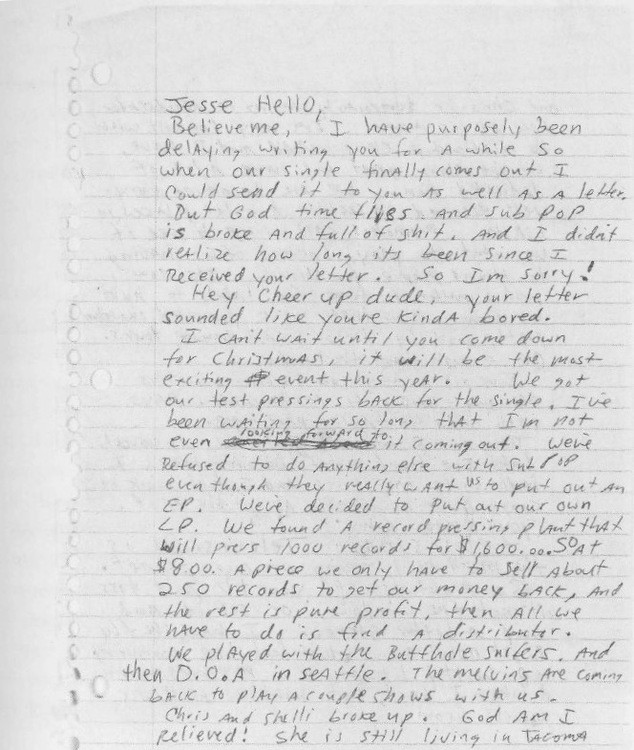 Jesse Hello,
Believe me, I have purposely been
delaying writing you for a while so
when our single finally comes out I
could send it to you as well as a letter.
But God time flies and sub pop
is broke and full of shit. And I didn't
realize how long its been since I
received your letter. So Im sorry!
Hey Cheer up dude, your letter
sounded like youre kinda bored.
I cant wait until you come down
for Christmas, it will be the most
exciting event this year. We got
our test pressings back for the single. I've
been waiting for so long that Im not
even looking forward to it coming out. weve
Refused to do Anything else with sub pop
even though they really want us to put out an
EP. Weve decided to put out our own
LP. We found a record pressing plant that
will press 1000 records for $1,600.00. So At
$8.00. a piece we only have to sell about
250 records to get our money back, and
the rest is pure profit, then all we
have to do is find a distributor.
We played with the Butthole surfers. And
then D.O.A in seattle. The melvins are coming
back to play a couple shows with us.
Chris and shelli broke up. God Am I
relieved! She is still living in TACOMA